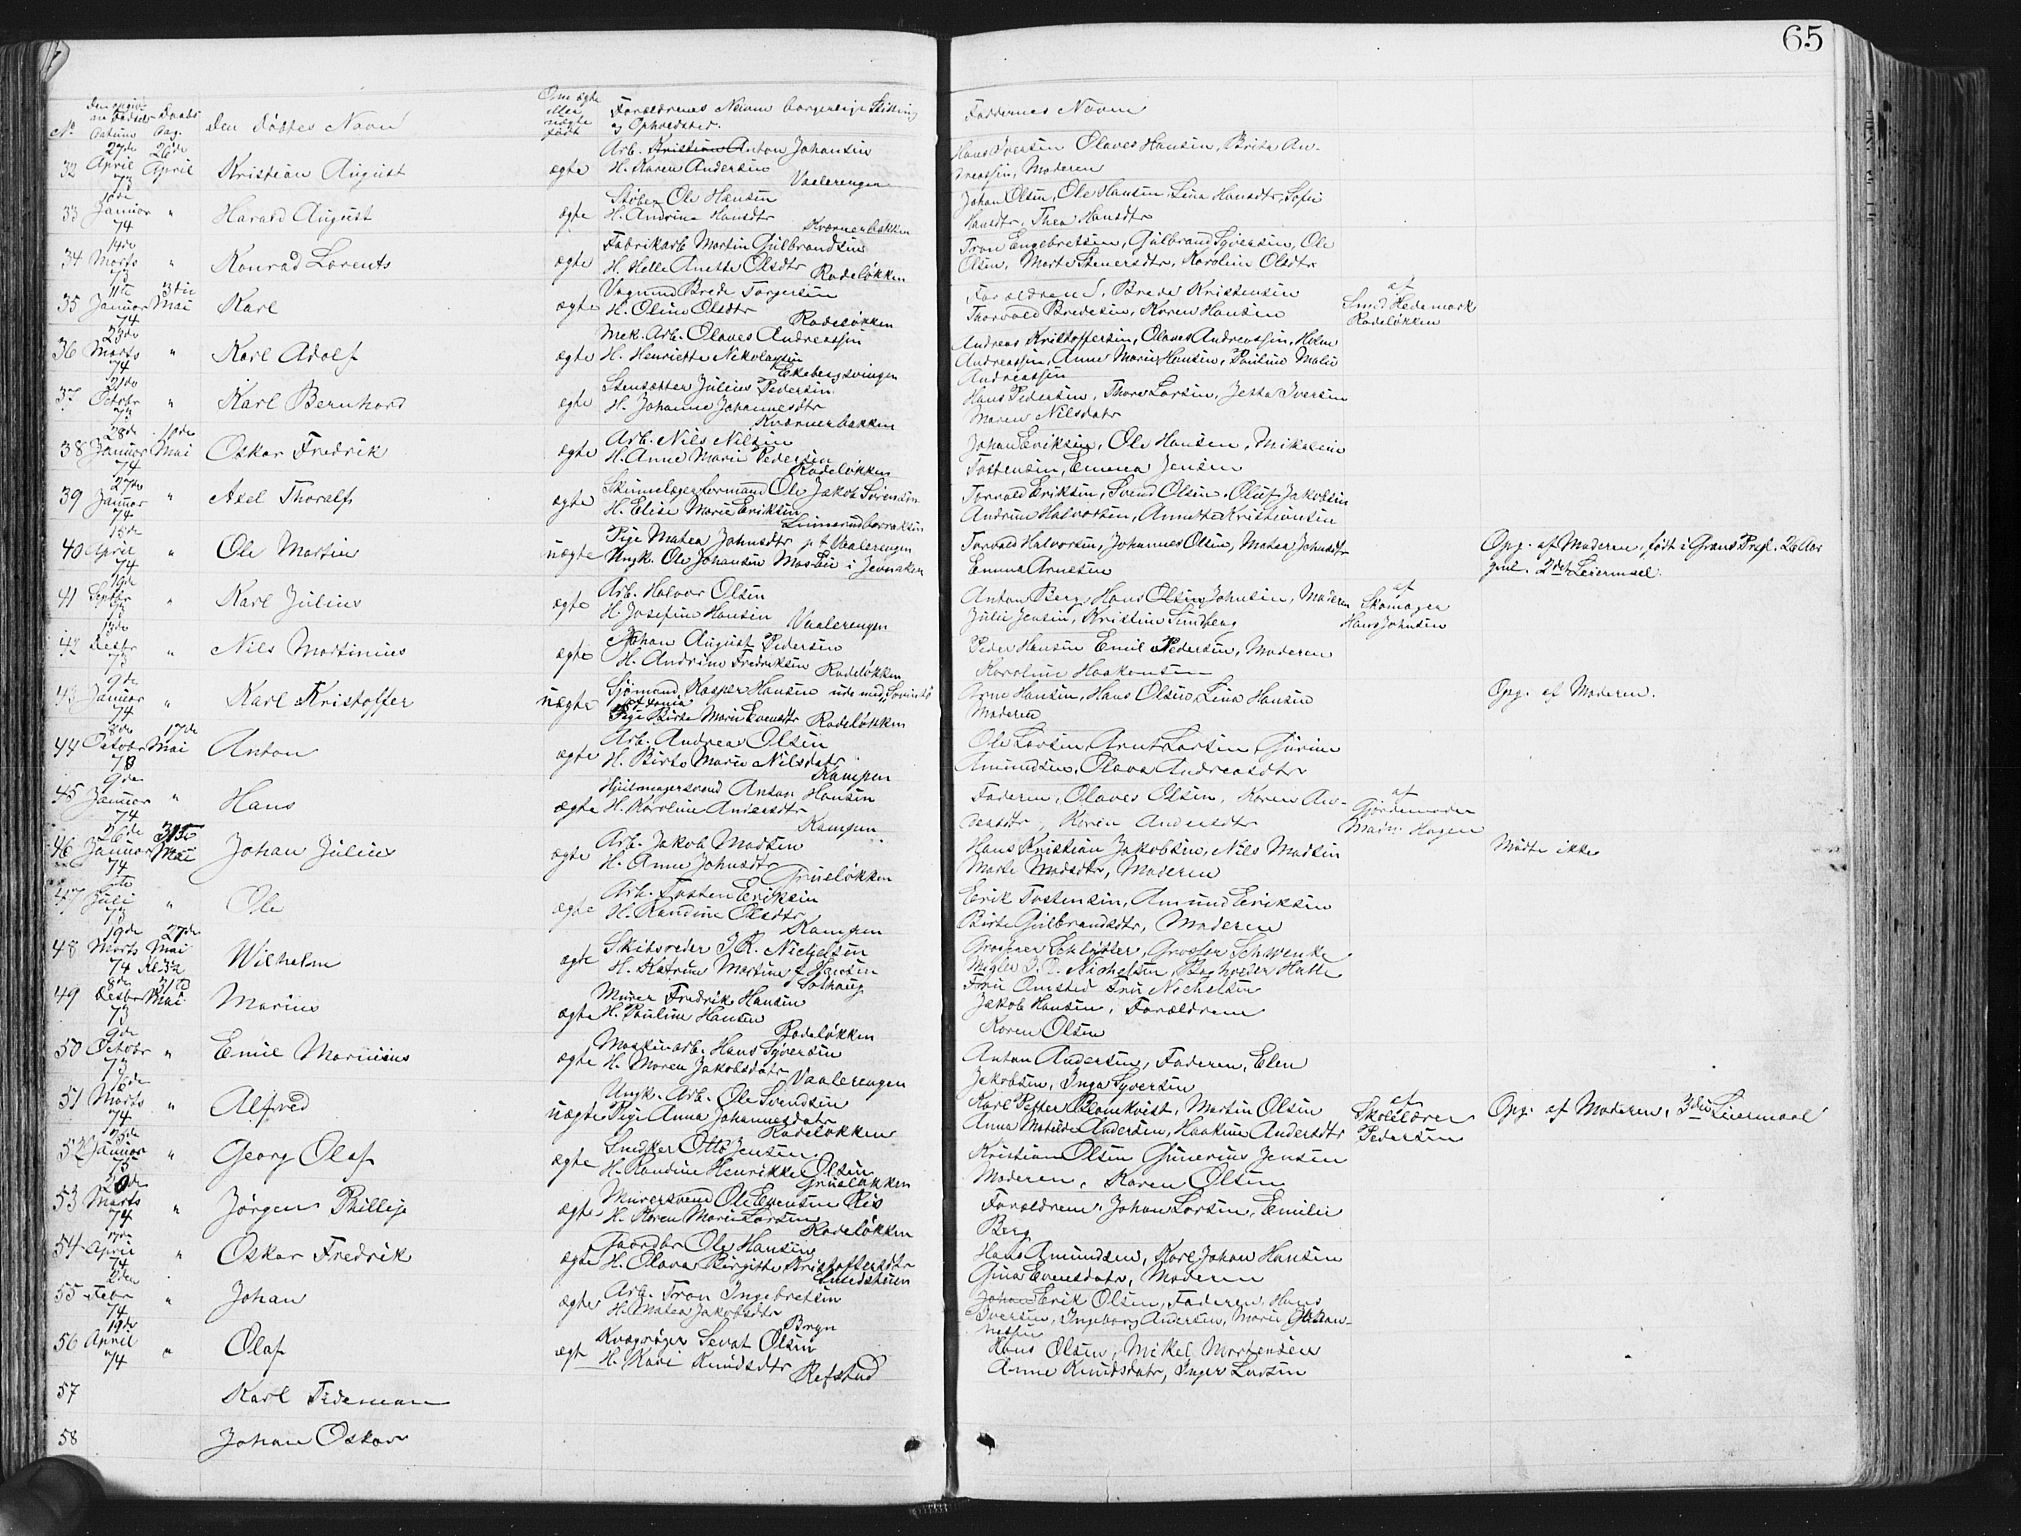 65
No Daabs Dag. Den Døbtes Navn Om ægte eller uægte født Forældrenes Navne borgerlige Stilling og Opholdssted. Faddernes Navne
32 27de April 73 26de April Kristian August ægte Arb. Kristian Anton Johansen
H. Karen Andersen Vaalerengen
Hans Iversen Olaves Hansen, Brita An-
dreassen, Moderen
33 Januar 74 " Harald August ægte Støber Ole Hansen
H. Andrine Hansdtr Kværnerbakken
Johan Olsen, Ole Hansen, Lina Hansdtr, Sofie
Hansdtr, Thea Hansdtr
34 14de Marts 73 " Konrad Lorents ægte Fabrikarb Martin Gulbrandsen
H. Helle Anette Olsdtr Rodeløkken
Tron Engebretsen, Gulbrand Syversen, Ole
Olsen, Marte Stenersdtr, Karoline Olsdtr
35 11te Januar 74 3die Mai Karl ægte Vognmd Brede Torgersen
H. Oline Olsdtr Rodeløkken
Forældrene, Brede Kristensen
Thorvald Bredesen, Karen Hansen
af Smed Hedemark Rodeløkken
36 23de Marts 74 " Karl Adolf ægte Mek. Arb. Olaves Andreassen
H. Henriette Nikolaysen Ekebergsvingen
Andreas Kristoffersen, Olaves Andreassen, Helene
Andreassen, Anne Marie Hansen, Pauline Malie
Andreassen
37 21de Octobr 73 " Karl Bernhard ægte Stensætter Julius Pedersen
H. Johanne Johannesdtr Kværnerbakken
Hans Pedersen, Thore Larsen, Jetta Iversen
Maren Nilsdatr
38 28de Januar 74 10de Mai Oskar Fredrik ægte Arb. Nils Nilsen
H. Anne Marie Pedersen Rodeløkken
Johan Eriksen, Ole Hansen, Mikaline
Tostensen, Emma Jensen
39 27de Januar 74 " Axel Thoralf ægte Skinnelægerformand Ole Jakob Sørensen
H. Elise Marie Eriksen
Torvald Eriksen, Svend Olsen, Oluf Jakobsen
Andrine Halvorsen, Annette Kristiansen
40 15de April 74 " Ole Martin uægte Pige Matea Johnsdtr p. t. Vaalerengen
Ungk. Ole Johansen Moslie i Jevnaker
Torvald Halvorsen, Johannes Olsen, Matea Johnsdtr
Emma Arnesen
Opg. af Moderen, født i Grans Prgl. 26 Aar
gml. 2det Leiermaal.
41 19de Septbr 73 " Karl Julius ægte Arb. Halvor Olsen
H. Josefine Hansen Vaalerengen
Anton Berg, Hans Olsen Johnsen, Moderen
Julie Jensen, Kristine Lundberg
af Skomager Hans Johnsen
42 13de Decbr 73 " Nils Martinius ægte Johan August Pedersen
H. Andrine Fredriksen Rodeløkken
Peder Hansen Emil Pedersen, Moderen
Karoline Haakensen
43 9de Januar 74 " Karl Kristoffer uægte Sjømand Kasper Hansen ude med
Pige Birte Marie Evensdtr Rodeløkken
Arne Hansen, Hans Olsen, Lina Hansen
Moderen
Opg. af Moderen.
44 8de Octobr 73 17de Mai Anton ægte Arb. Andrea Olsen
H. Birte Marie Nilsdatr Kampen
Ole Larsen, Arnt Larsen, Gurine
Amundsen, Olava Andreasdtr
45 9de Januar 74 " Hans ægte Hjulmagersvend Anton Hansen
H. Karoline Andersdtr Kampen
Faderen, Olaves Olsen, Karen An-
dersdtr, Karen Andersdtr
af Gjordemoder Madm. Hagen
46 26de Januar 74 31te Mai Johan Julius ægte Arb. Jakob Madsen
H. Anne Johnsdtr Grueløkken
Hans Kristian Jakobsen, Nils Madsen
Marte Madsdtr, Moderen
Mødte ikke
47 Juli 73 " Ole ægte Arb. Tosten Eriksen
H. Randine Olsdtr Kampen
Erik Tostensen, Amund Eriksen
Birte Gulbrandsdtr, Moderen
48 19de Marts 74 27de Mai Wilhelm ægte Skibsreder J. R. Nichelsen
H. Katrine Martine f. Hansen Solhaug
Grosserer Schløtler, Grosser Schwenke
Megler J. O. Nichelsen, Boghveder Halle
Fru Omsted Fru Nichelsen
49 8de Decbr 73 31te Mai Marius ægte Murer Fredrik Hansen
H. Pauline Hansen Rodeløkken
Jakob Hansen, Forældrene
Karen Olsen
50 9de Octobr 73 " Emil Marinius ægte Maskinarb. Hans Syversen
H. Maren Jakobsdatr Vaalerengen
Anton Andersen, Faderen, Elen
Jakobsen, Inga Syversen
51 16de Marts 74 " Alfred uægte Ungk. Arb. Ole Svendsen
Pige Anna Johannesdatr Rodeløkken
Karl Petter Blomkvist, Martin Olsen
Anna Matilde Andersen, Haakine Andersdtr
af Skolelærer Pedersen
Opg. af Moderen, 3die Leiermaal
52 Januar 73 " Georg Olaf ægte Snedker Otto Jensen
H. Randine Henrikke Olsen Grueløkken
Kristian Olsen Gunerius Jensen
Moderen, Karen Olsen
53 20de Marts 74 " Jørgen Phillip ægte Murersvend Ole Evensen Ris
H. Karen Marie Larsen Rodeløkken
Forældrene, Johan Larsen, Emilie
Berg
54 17de April 74 " Oskar Fredrik ægte Gaardbr Ole Hansen
H. Olava Birgitte Kristoffersdtr Smedstuen
Hans Amundsen, Karl Johan Hansen
Gina Evensdatr, Moderen
55 2den Febr 74 " Johan ægte Arb. Tron Ingebretsen
H. Matea Jakobsdtr Bryn
Johan Erik Olsen, Faderen, Hans
Iversen, Ingeborg Andersen, Marie Johan-
nessen
56 19de April 74 " Olaf ægt Kvægrøgter Sevat Olsen
H. Kari Knudsdtr Refstad
Hans Olsen, Mikel Mortensen
Anne Knudsdatr, Inger Larsen
57 Karl Tideman
58 Johan Oskar